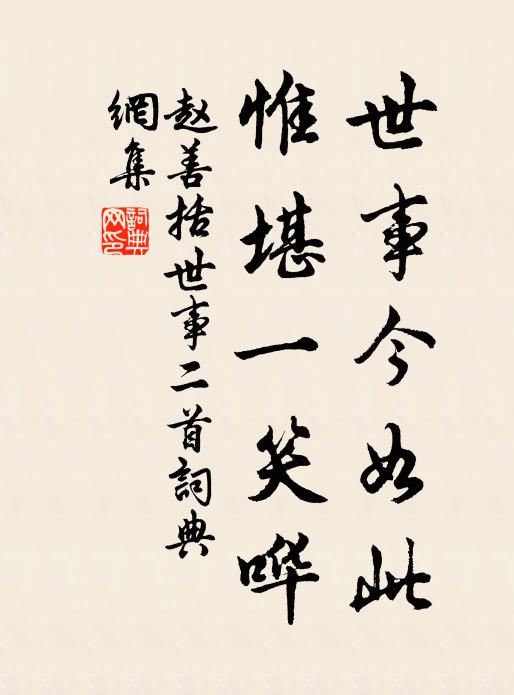 世事今如此
惟堪一笑哗
赵善括世事二首詞典
網集
詞典网印